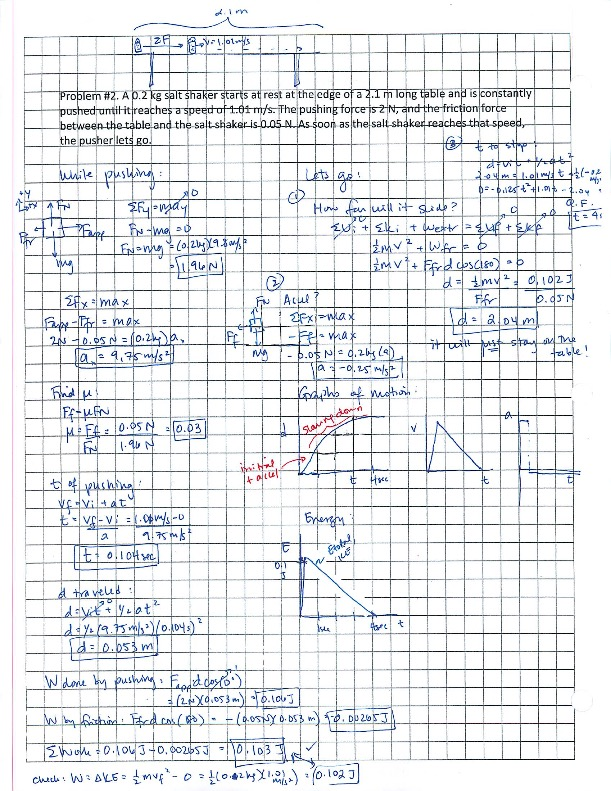 2.1m
2F
v=1.01m/s
Problem #2. A 0.2 kg salt shaker starts at rest at the edge of a 2.1 m long table and is constantly
pushed until it reaches a speed of 1.01 m/s. The pushing force is 2 N, and the friction force
between the table and the salt shaker is 0.05 N. As soon as the salt shaker reaches that speed,
the pusher lets go.
While pushing:
+y
+x
FN
Fapp
Ffr
mg
ΣFy = may 0
FN - mg = 0
FN = mg = (0.2kg)(9.8m/s²
= 1.96 N
ΣFx = max
Fapp - Ffr = max
2N - 0.05N = (0.2kg) ax
a = 9.75 m/s²
Find μ:
Ff = μFN
μ = Ff/FN = 0.05N/1.96 N = 0.03
t of pushing:
vf = vi + at
t = vf - vi / a = 1.01m/s - 0 / 9.75 m/s²
t = 0.104 sec
d traveled:
d = vit + 1/2 at² 0
d = 1/2 (9.75 m/s²)(0.104s)²
d = 0.053 m
W done by pushing: Fapp d cos(0°) 1
= (2N)(0.053m) = 0.106J
W by friction: Ffrd cos(180) = -(0.05N)(0.053m) = -0.00265J
ΣWork = 0.106J - 0.00265J = 0.103 J ✓
check: W = ΔKE = 1/2 mvf² - 0 = 1/2 (0.2kg)(1.01 m/s)² = 0.102 J
Lets go:
① How far will it slide?
ΣUi + ΣKi + Wextr = ΣUf + ΣKf
1/2 mv² + Wfr = 0
1/2 mv² + Ffr d cos(180) = 0
d = 1/2 mv² / Ffr = 0.102 J / 0.05N
d = 2.04 m
it will just stay on the
table!
② Accel?
FN
Ff
mg
ΣFx = max
-Ff = max
-0.05N = 0.2kg (a)
a = -0.25 m/s²
③ t to stop:
d = vit + 1/2 at²
2.04m = 1.01m/s t + 1/2(-0.2
0 = -0.125t² + 1.01t - 2.04
Q.F.
Graphs of motion:
d
slowing down
initial
+ accel
t
4sec
v
t
a
t
Energy:
E
0.1
J
Etotal,
KE
1sec
4sec
t